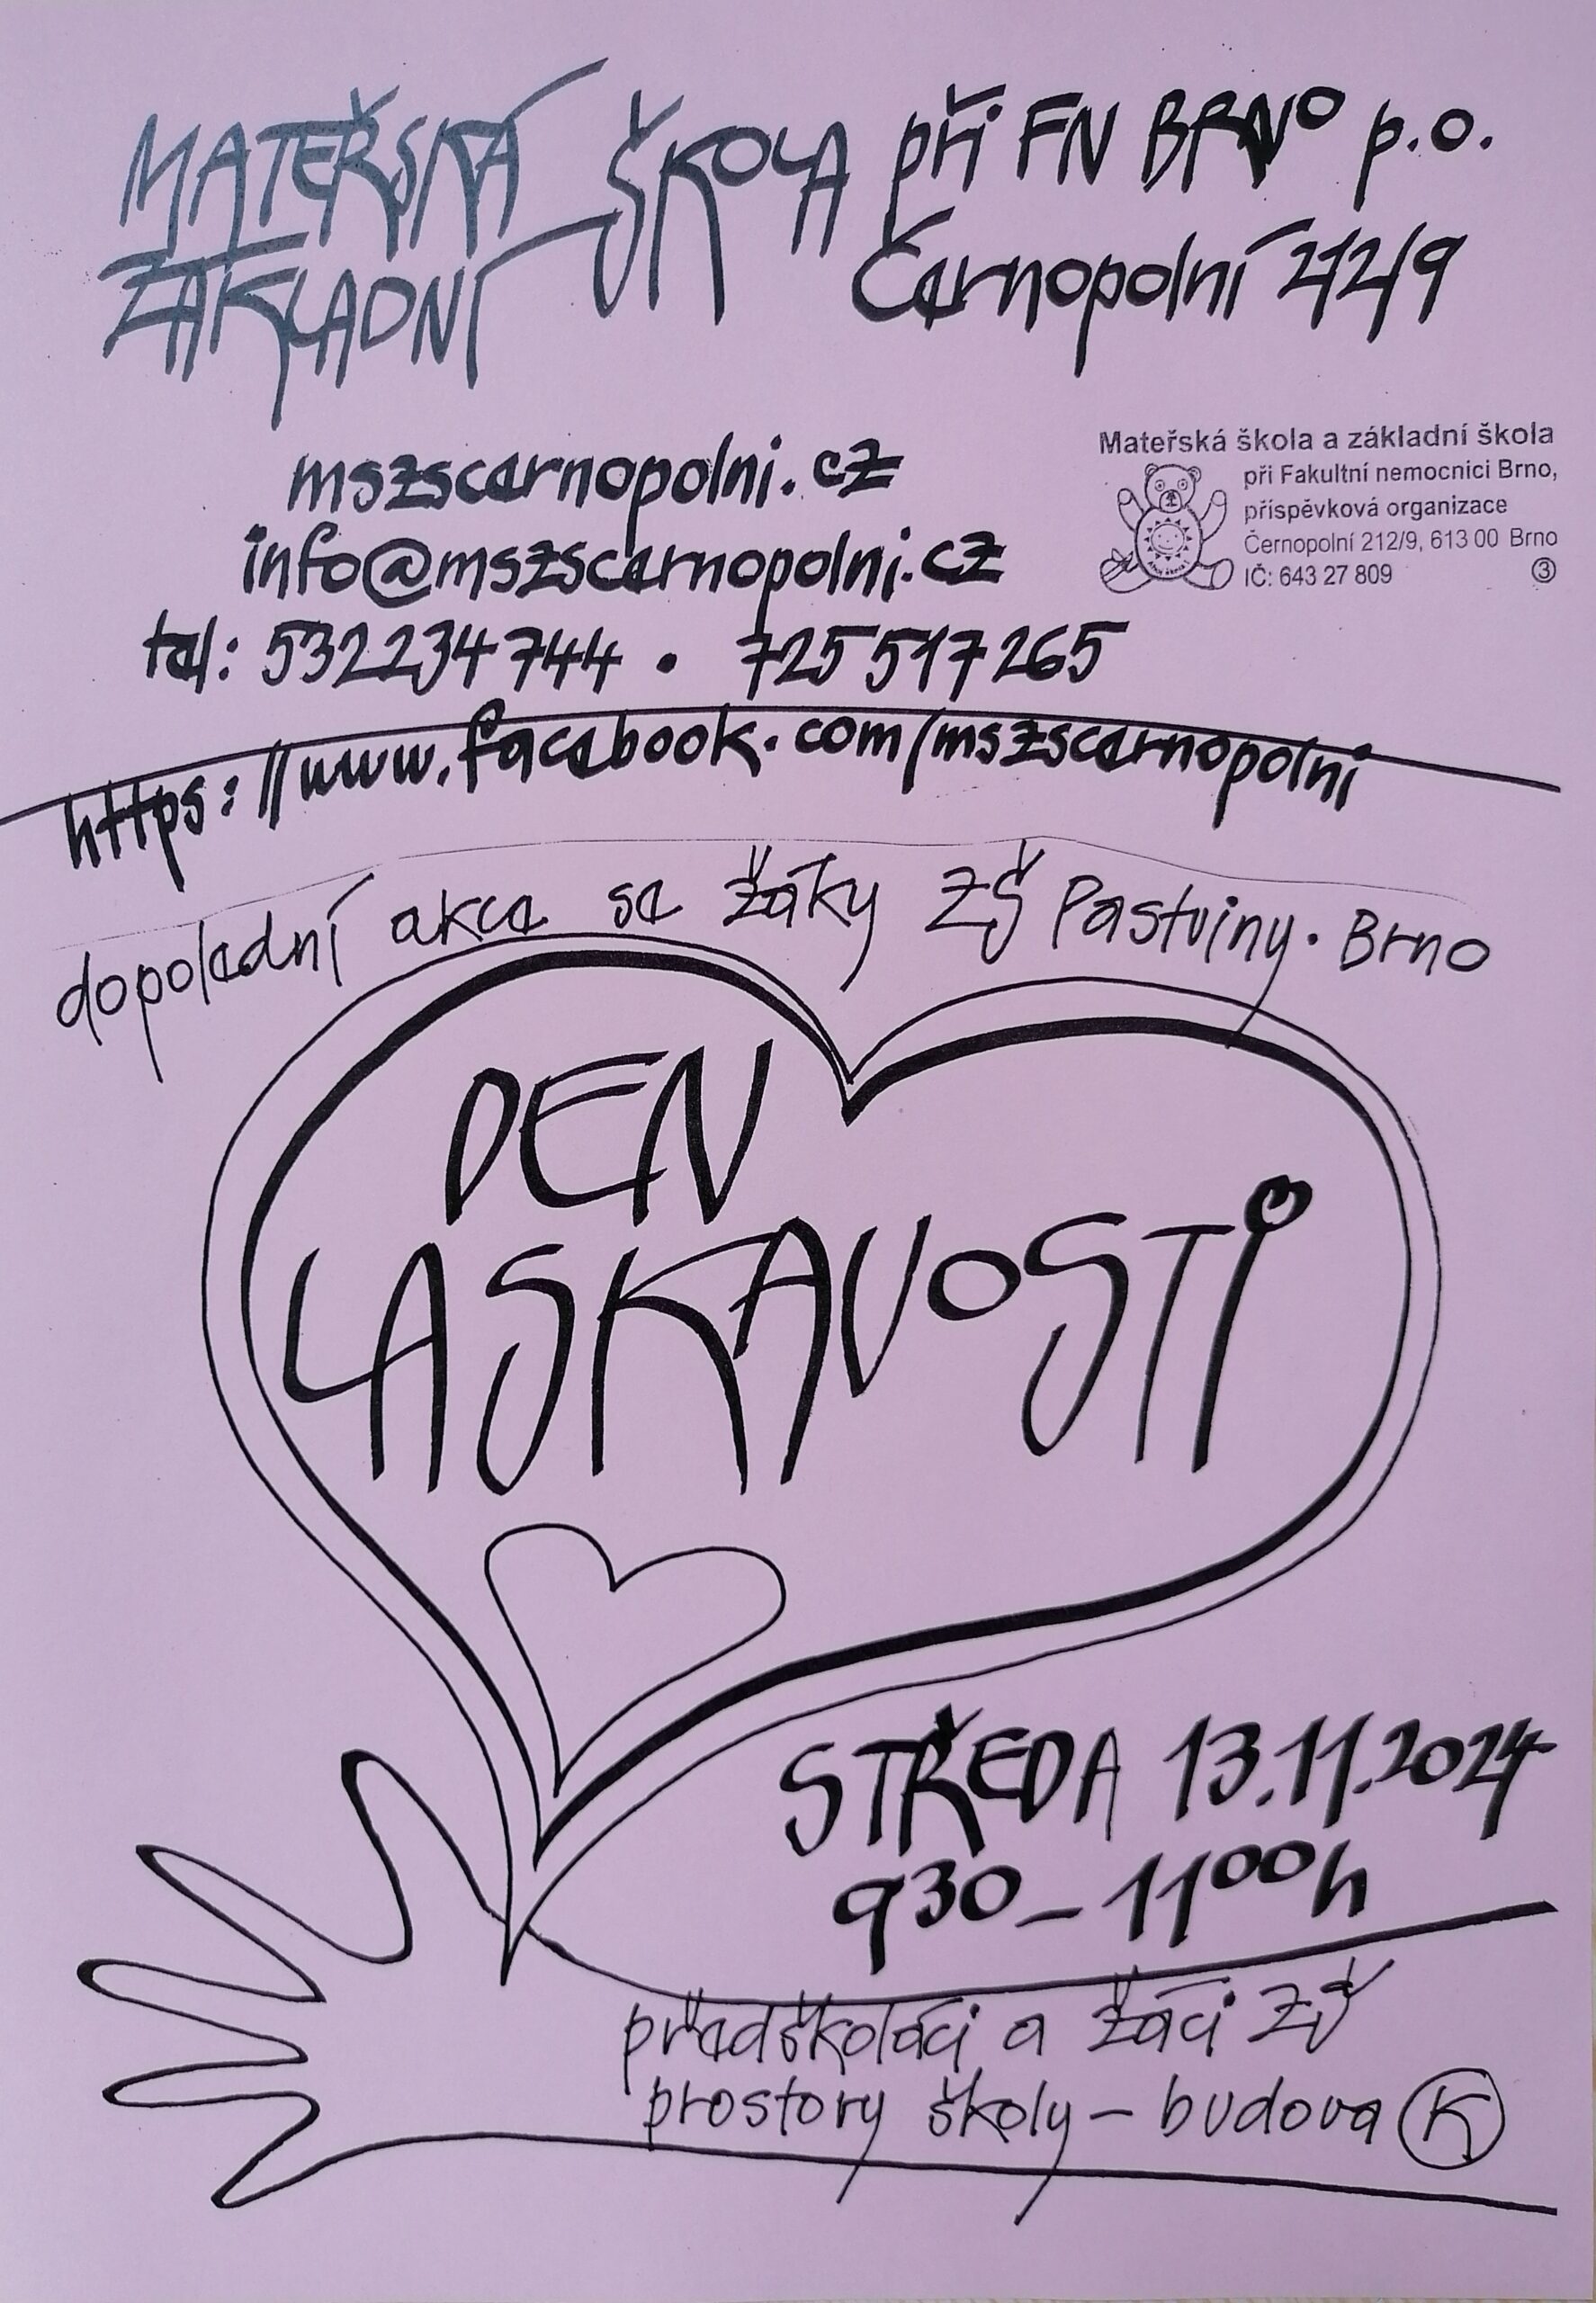 MATEŘSKÁ ŠKOLA při FN BRNO p.o.
ZÁKLADNÍ Černopolní 212/9
mszscernopolni.cz
info@mszscernopolni.cz
tel: 532234744 • 725517265
https://www.facebook.com/mszscernopolni
Mateřská škola a základní škola
při Fakultní nemocnici Brno,
příspěvková organizace
Černopolní 212/9, 613 00 Brno
IČ: 643 27 809 3
dopolední akce se žáky ZŠ Pastviny. Brno
DEN
LASKAVOSTI
STŘEDA 13.11.2024
930 - 1100h
předškoláci a žáci ZŠ
prostory školy - budova K